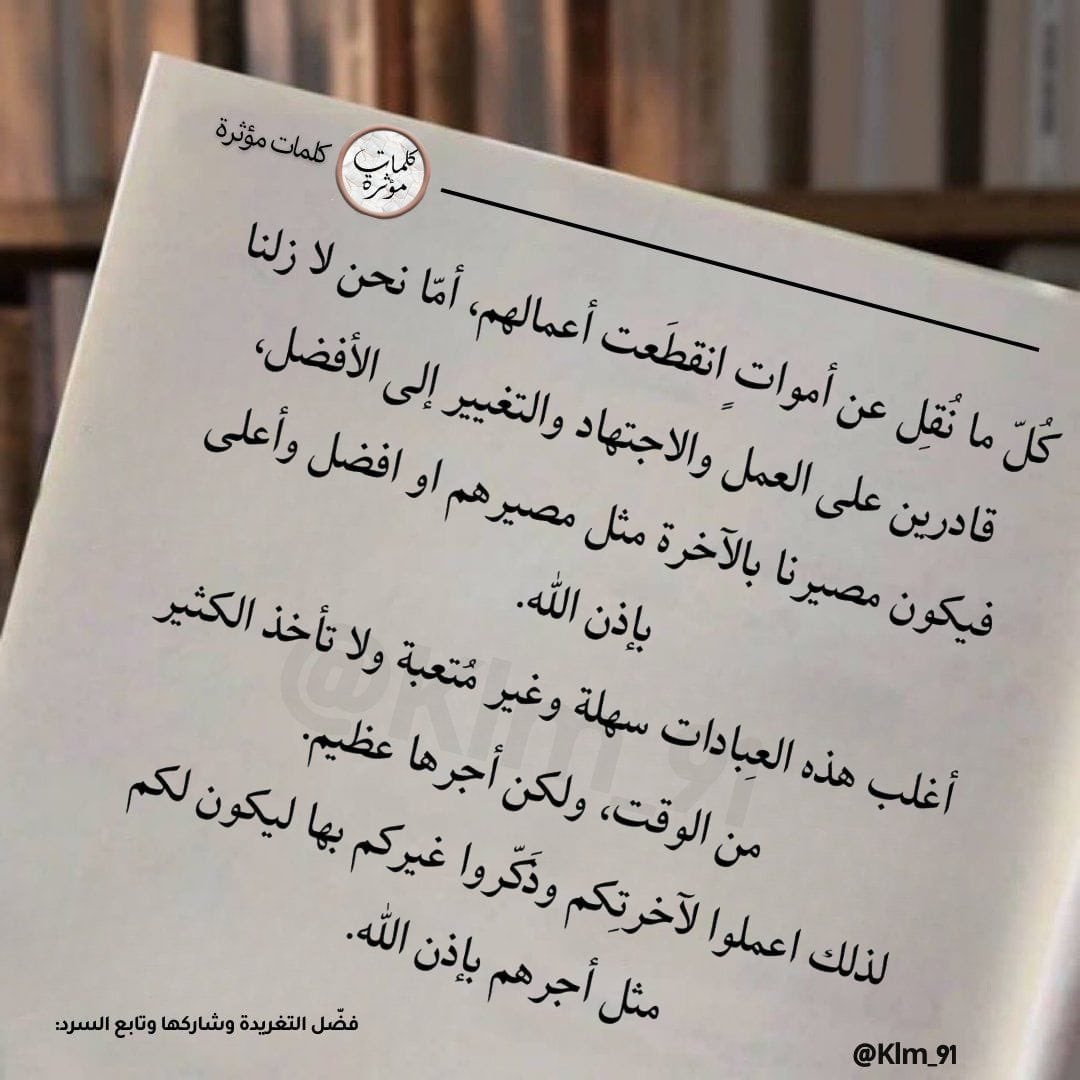 كلمات مؤثرة
كلمات
مؤثرة
كُلّ ما نُقِل عن أمواتٍ اِنقطَعت أعمالهم، أمّا نحن لا زلنا
قادرين على العمل والاجتهاد والتغيير إلى الأفضل،
فيكون مصيرنا بالآخرة مثل مصيرهم او افضل وأعلى
بإذن الله.
أغلب هذه العِبادات سهلة وغير مُتعبة ولا تأخذ الكثير
من الوقت، ولكن أجرها عظيم.
لذلك اعملوا لآخرتِكم وذَكّروا غيركم بها ليكون لكم
مثل أجرهم بإذن الله.
@Klm_91
فضّل التغريدة وشاركها وتابع السرد:
@Klm_91